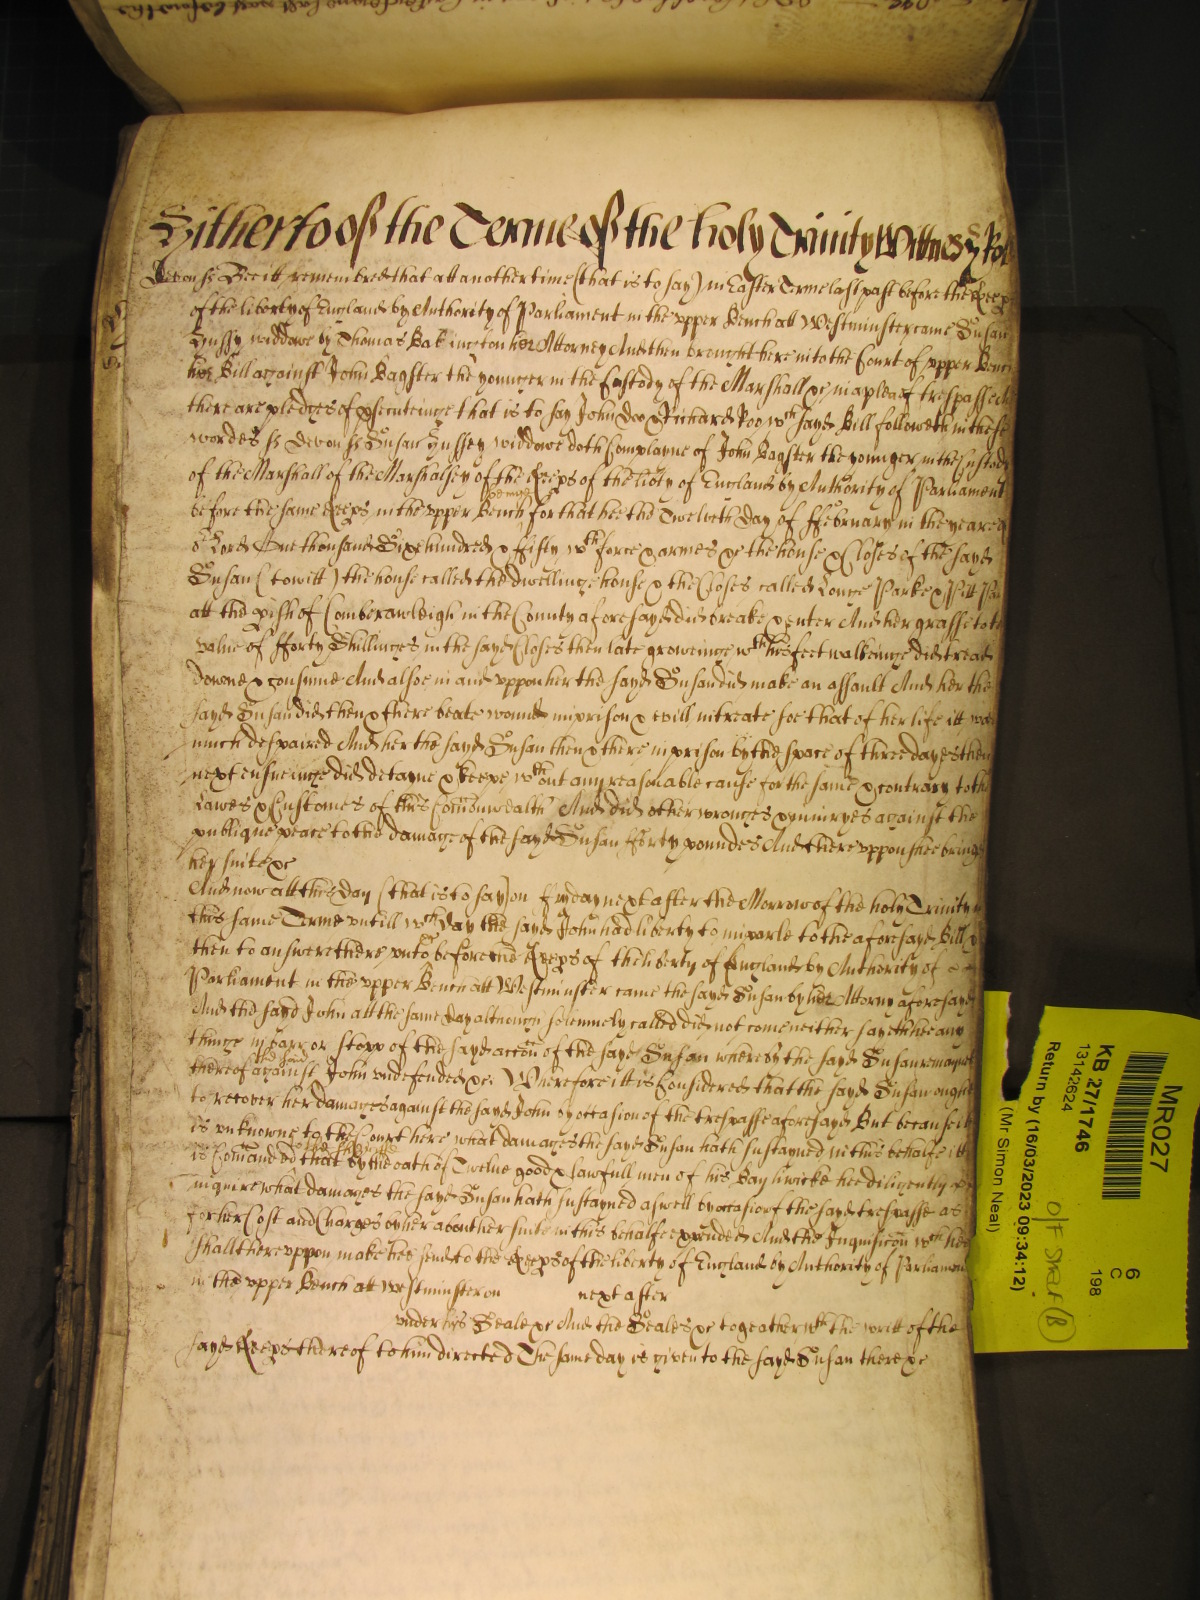 Hitherto of the Terme of the holy Trinity Wittnes H Rol
Devon ss Bee itt remembred that att another time (that is to say) in Easter Terme last past before the Keeps
of the liberty of England by Authority of Parliament in the vpper Bench att Westminster came Susan
Hussy widdowe by Thomas Babington her Attorney And then brought here into the Court of vpper Bench
her Bill against John Bagster the younger in the Custody of the Marshall &c in a plea of trespasse And
there are pledges of psecuteinge that is to say John Doo & Richard Roo wch sayd Bill followeth in these
wordes ss Devon ss Susan Hussey widdowe doth Complayne of John Bagster the younger in the Custody
of the Marshall of the Marshalsey of the Keeps of the libty of England by Authority of Parliament
before the same Keeps in the vpper Bench beinge for that hee the Twelveth day of ffebruary in the yeare of
or Lord One thousand Sixe hundred & ffifty wth force & armes &c the house & Closes of the sayd
Susan (to witt) the house called the dwellinge house & the Closes called Longe Parke & Pitt
att the pish of Comberawleigh in the County aforesayd did breake & enter And her grasse to the
value of fforty Shillinges in the sayd Closes then late groweinge wth his feet walkeinge did tread
downe & consume And alsoe in and vppon her the sayd Susan did make an assault And her the
sayd Susan did then & there beate wound imprison & evill intreate soe that of her life itt was
much despaired And her the sayd Susan then & there in prison by the space of three dayes then
next ensueinge did detayne & keepe wthout any reasonable cause for the same & contrary to the
Lawes & Customes of this Comonwealth And did other wronges & iniuryes against the
publique peace to the damage of the sayd Susan fforty poundes And therevppon shee bringes
her suite &c
And now att this day (that is to say) on Fryday next after the Morrow of the holy Trinity in
this same Terme vntill wch day the sayd John had liberty to imparle to the aforesayd Bill &
then to answere there vnto before the Keeps of the liberty of England by Authority of
Parliament in the vpper Bench att Westminster came the sayd Susan by her Attorny aforesayd
And the sayd John att the same day although solemnely called did not come neither sayeth hee any
thinge in barr or stopp of the sayd accon of the sayd Susan whereby the sayd Susan remaynes
thereof against the sayd John vndefended &c Wherefore itt is Considered that the sayd Susan ought
to recover her damages against the sayd John by occasion of the trespasse aforesayd But because itt
is vnknowne to the Court here what damages the sayd Susan hath sustayned in this behalfe itt
is Comanded the Sheriffe that by the oath of Twelve good & lawfull men of his Baylywicke hee diligently
inquire what damages the sayd Susan hath sustayned aswell by occasion of the sayd trespasse as
for her Cost and Charges by her about her suite in this behalfe expended And the Inquisicon wch hee
shall therevppon make hee send to the Keeps of the liberty of England by Authority of Parliament
in the vpper Bench att Westminster on next after
vnder his Seale &c And the Seales &c togeather wth the writt of the
sayd Keeps thereof to him directed The same day is given to the sayd Susan there &c
MR027
KB 27/1746
13142624
Return by (16/03/2023 09:34:12)
(Mr Simon Neal)
6
C
198
O/F Shelf (B)